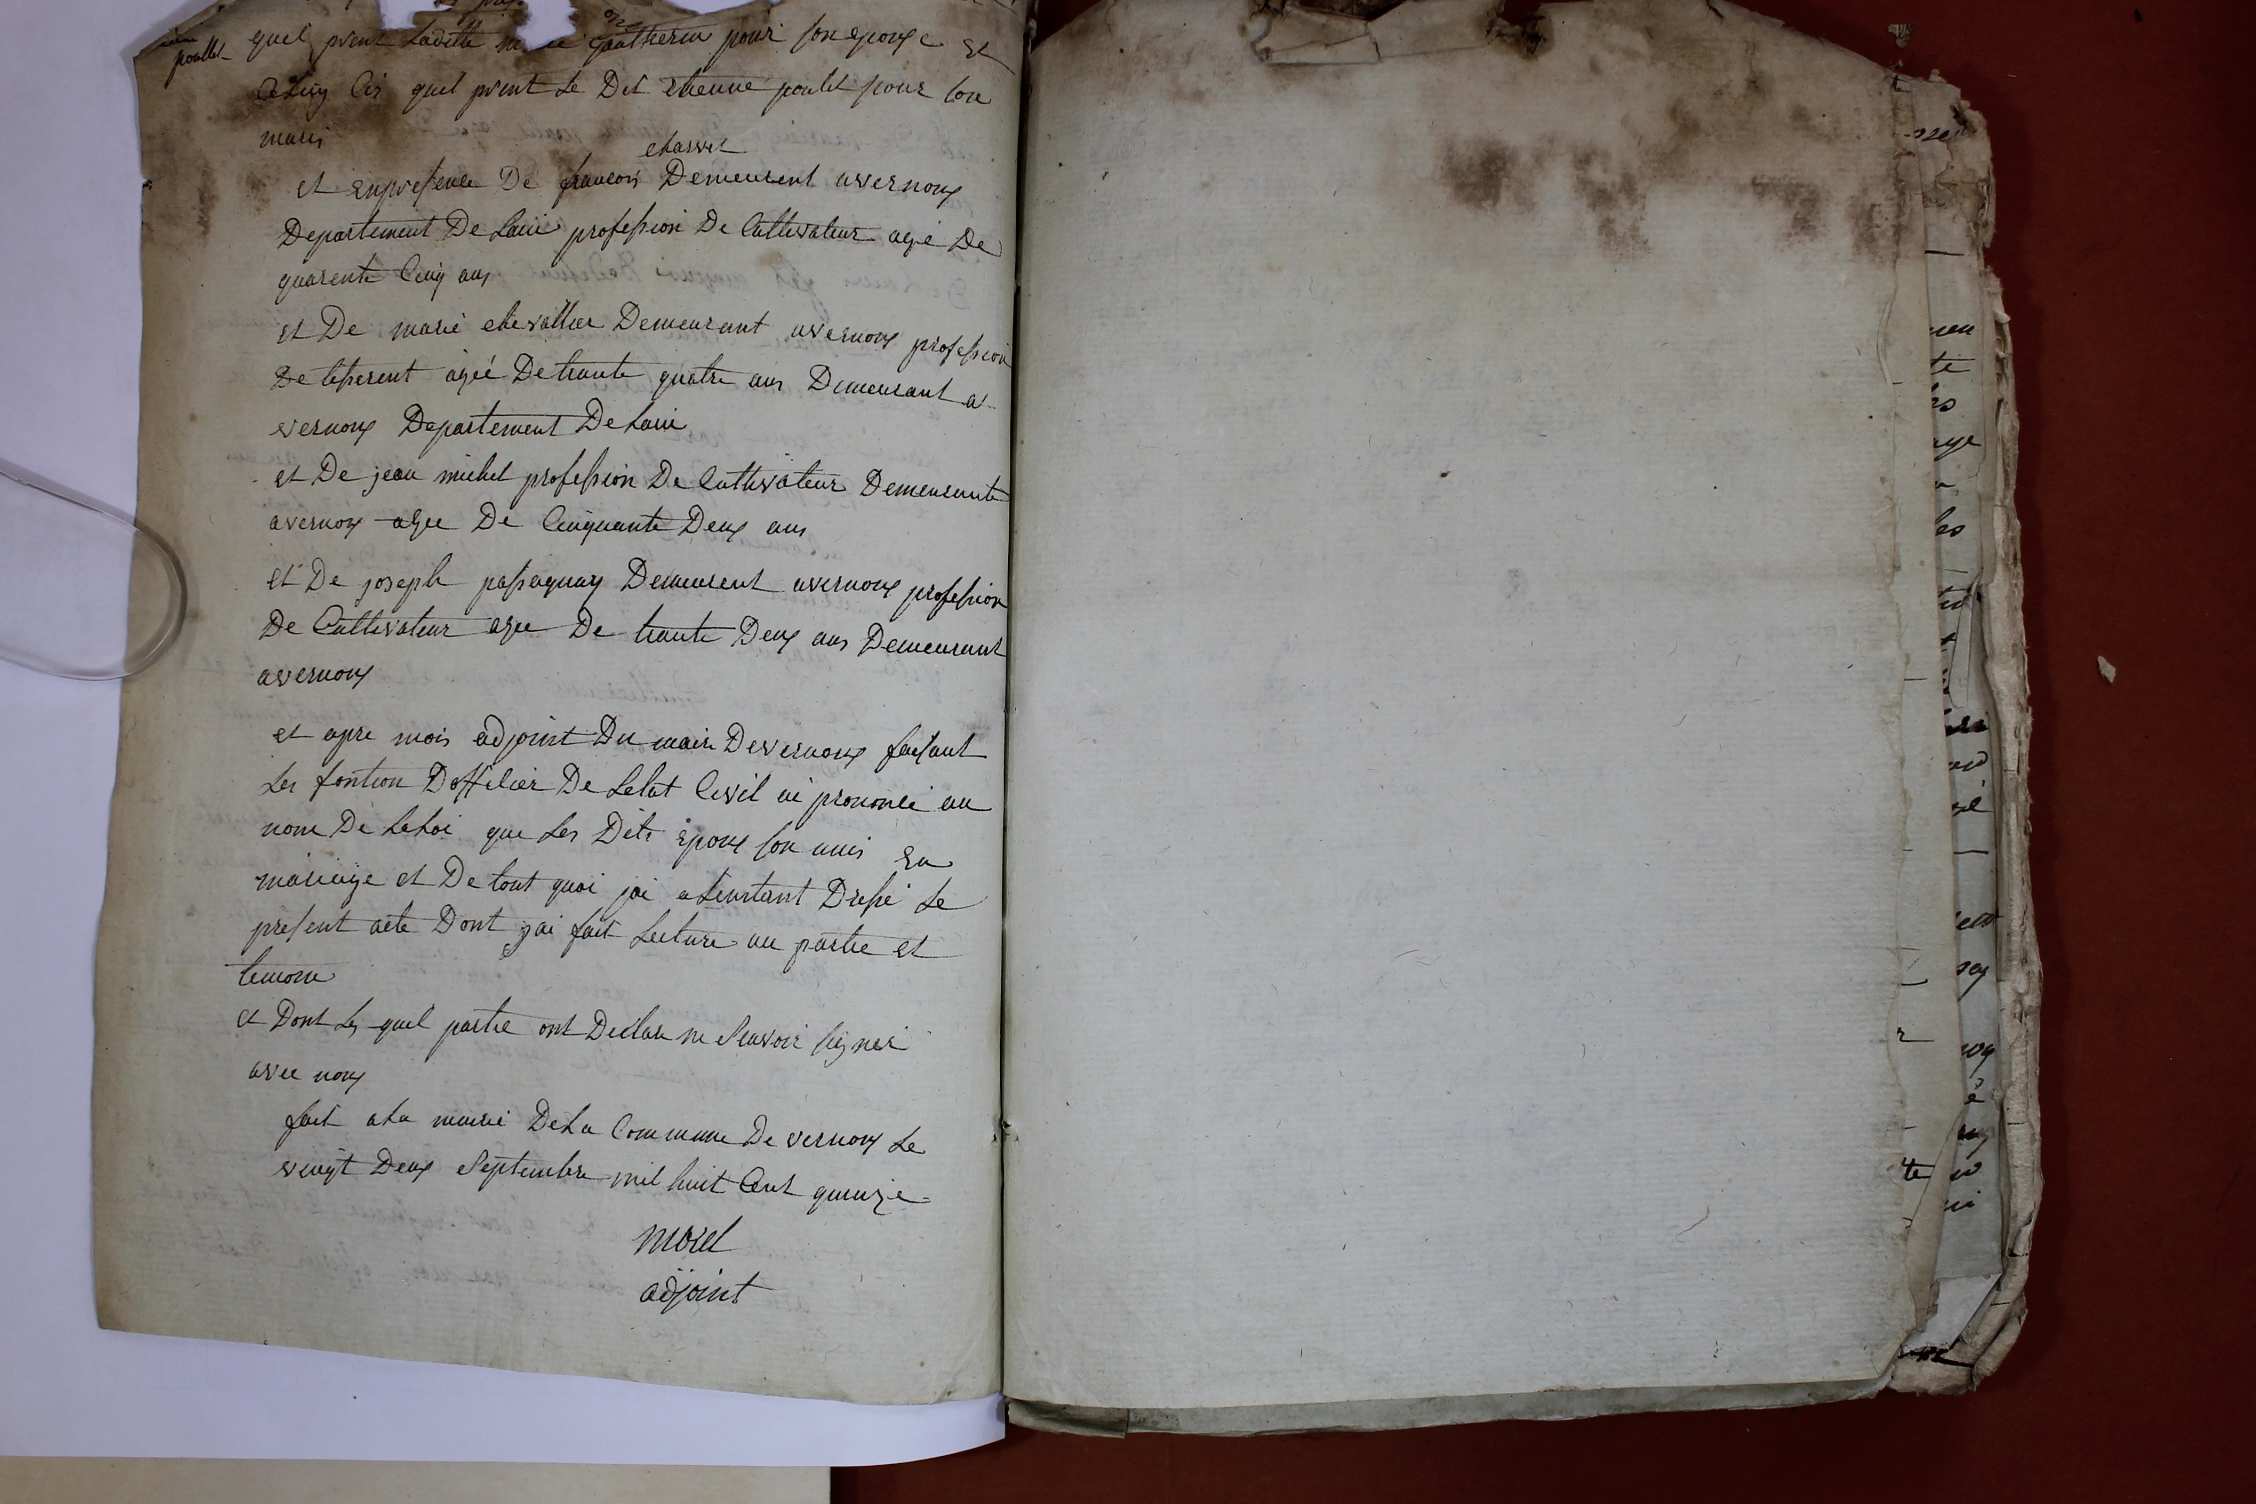 poullet
quel prent Laditte marie gautheron pour son epouse et
Celuy Cis quel prent Le Dit etienne poulet pour son
maris
chasset
et enpresence De francois Demeurent avernoux
Departement De Lain profession De Cultivateur age De
quarente Cinq ans
et De marie chevallier Demeurant avernoux profession
De tisserent agee De trante quatre ans Demeurant a
vernoux Departement De Lain
et De jean michel profession De Cultivateur Demeurante
avernoux agee De Cinquante Deux ans
et De joseph passaquay Demeurent avernoux profession
De Cultivateur agee De trante Deux ans Demeurant
avernoux
et apre mois adjoint Du maire Devernoux faisant
Les fontion Dofficier De Letat Civil ai prononcé au
nom De La Loi que Les Dits epoux son unis en
mariage et De tout quoi jai a Linstant Dressé Le
present acte Dont jai fait Lecture au partie et
temoin
et Dont Les quel partie ont Declare ne Scavoir signer
avec nous
fait a La mairie De La Commune De vernoux Le
vingt Deux Septembre mil huit Cent quinze
morel
adjoint